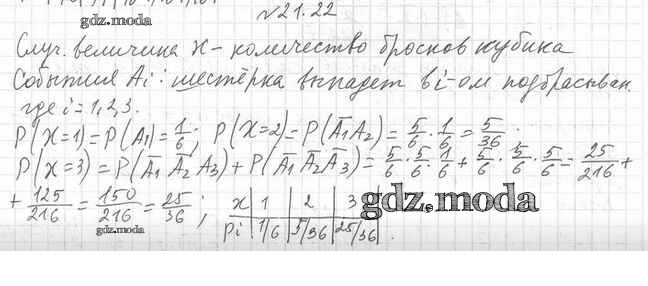 №21.22
gdz.moda
Случ. величина X - количество бросков кубика
События Ai: шестёрка выпадет в i-ом подбрасыван.
где i = 1, 2, 3.
P(X=1) = P(A₁) = 1/6; P(X=2) = P(Ā₁A₂) = 5/6 · 1/6 = 5/36.
P(X=3) = P(Ā₁ Ā₂ A₃) + P(Ā₁ Ā₂ Ā₃) = 5/6 · 5/6 · 1/6 + 5/6 · 5/6 · 5/6 = 25/216 +
+ 125/216 = 150/216 = 25/36;
x | 1 | 2 | 3
pi | 1/6 | 5/36 | 25/36.
gdz.moda
gdz.moda